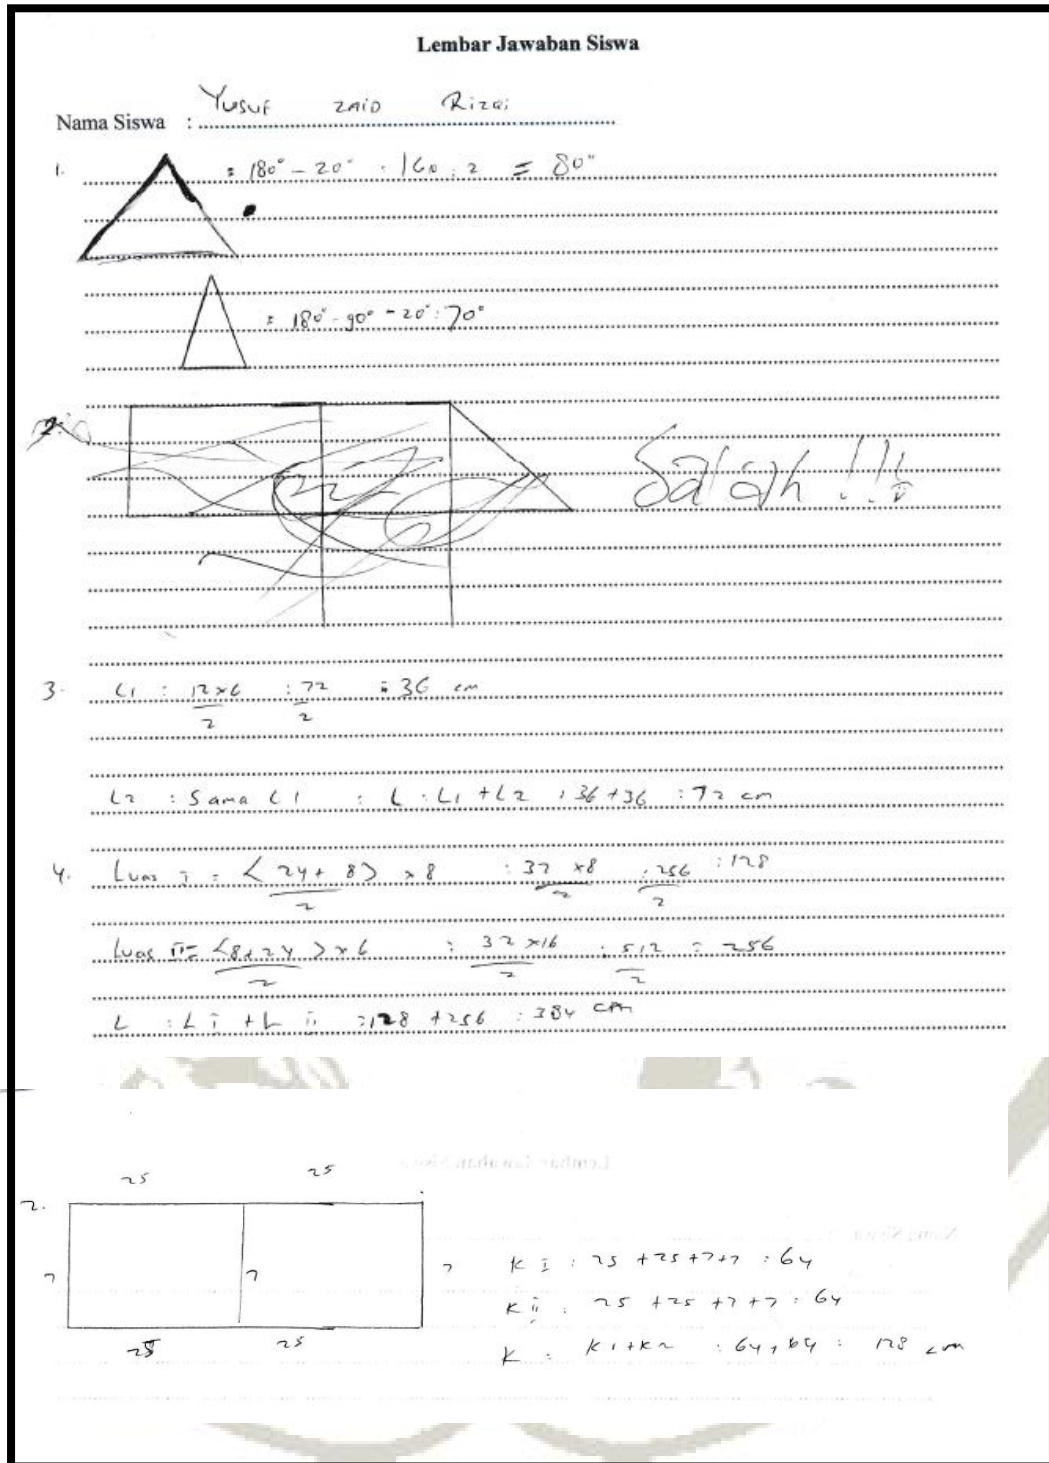 Lembar Jawaban Siswa
Nama Siswa : Yusuf ZAID Rizqi
1. = 180° - 20° : 160 : 2 = 80°
= 180° - 90° - 20° : 70°
2.
Salah !!!
3. L1 : 12 x 6 / 2 : 72 / 2 = 36 cm
L2 : Sama L1 : L : L1 + L2 : 36 + 36 : 72 cm
4. Luas I = (24 + 8) / 2 x 8 : 32 x 8 / 2 : 256 / 2 : 128
Luas II = (8 + 24) / 2 x 6 : 32 x 16 / 2 : 512 / 2 = 256
L : L I + L II : 128 + 256 : 384 cm
25 25
2.
7 7 7
K I : 25 + 25 + 7 + 7 : 64
K II : 25 + 25 + 7 + 7 : 64
25 25
K : K1 + K2 : 64 + 64 : 128 cm